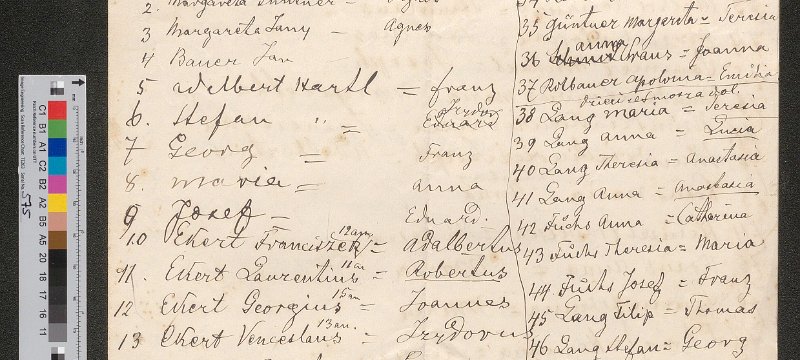 3 Margareta Jany — Agnes
4 Bauer Jan
5 Adelbert Hartl = Franz
6. Stefan " = Izydor
Eduard
7 Georg = Franz
8. Maria = Anna
9 Josef = Eduard.
10 Ekert Franciszek 12 an. = Adalbertus
11. Ekert Laurentius 11 an = Robertus
12 Ekert Georgius 15 an = Joannes
13 Ekert Venceslaus 13 an. = Izydorus
35 Güntner Margereta = Teresia
36 Anna Franz = Joanna
37 Rolbauer Apolonia = Emilia
38 Lang Maria = Teresia
39 Lang Anna = Lucia
40 Lang Theresia = Anastasia
41 Lang Anna = Anastasia
42 Fuchs Anna = Catherina
43 Fuchs Theresia = Maria
44 Fuchs Josef = Franz
45 Lang Filip = Thomas
46 Lang Stefan = Georg